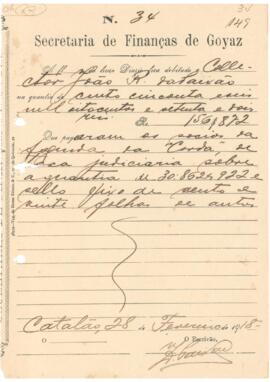 N. 34
34
149
Secretaria de Finanças de Goyaz
A fl. do livro Diario fica debitado o Colle-
ctor João
na quantia de cento cincoenta e seis
mil oitocentos e setenta e dois
reis. Rs. 156$872
Que pagaram os socios da
fazenda da "Corda", de
taxa judiciaria sobre
a quantia de 30:862$922 e
sello fixo de cento e
vinte folhas de autos
Catalão 28 de Fevereiro de 1918-
O Escrivão,